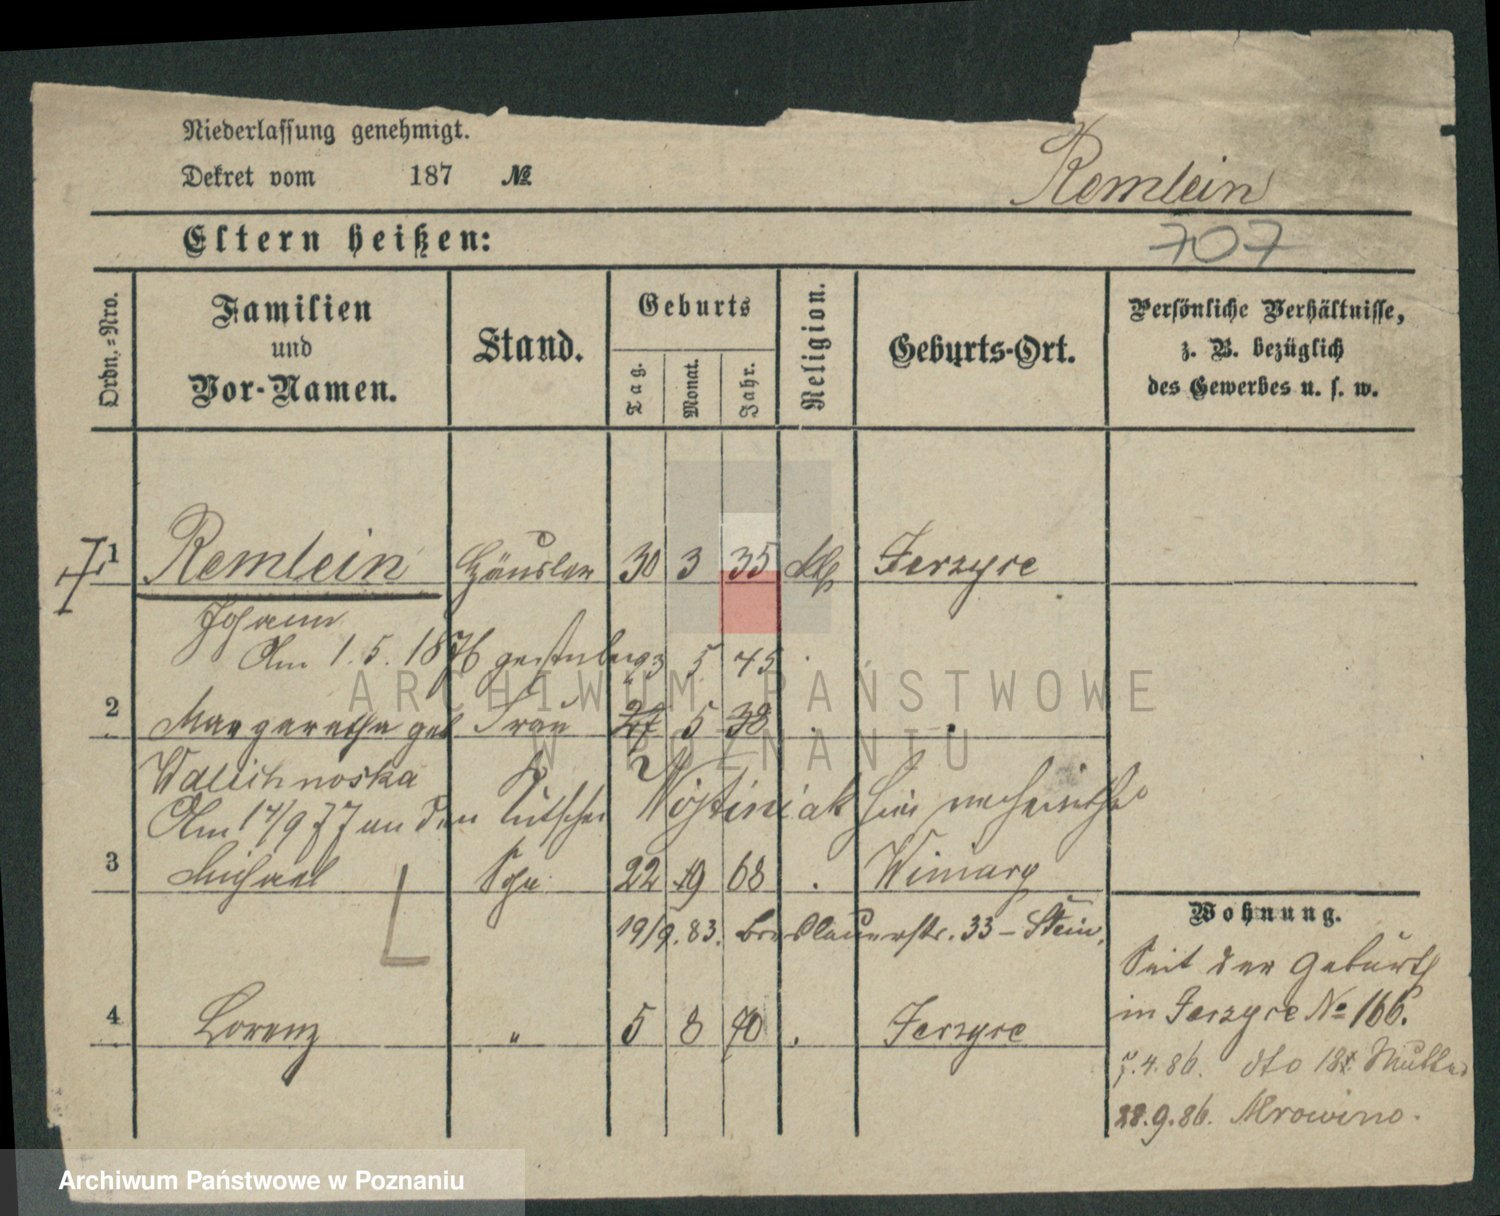 Niederlassung genehmigt.
Dekret vom 187 №
Remlein
Eltern heißen:
707
Ordn.=Nro.
Familien
und
Vor-Namen.
Stand.
Geburts
Tag.
Monat.
Jahr.
Religion.
Geburts-Ort.
Persönliche Verhältnisse,
z. B. bezüglich
des Gewerbes u. s. w.
1 Remlein Häusler 30 3 35 kth Jerzyce
Johann
Am 1. 5. 1876 gestorben 23 5 45
2 Margarethe geb Frau 27 5 38
Walichnoska
Am 17/9 77 an den Kutscher Wojtiniak hier verheirathet
3 Michael Sohn 22 9 68 . Winiary
19/9. 83. Breslauerstr. 33 – Stein.
4 Lorenz " 5 8 70 . Jerzyce
Wohnung.
Seit der Geburt
in Jerzyce № 166.
7.4.86. dto 18 Mutter
28.9.86. Mrowino.
ARCHIWUM PAŃSTWOWE
W POZNANIU
Archiwum Państwowe w Poznaniu